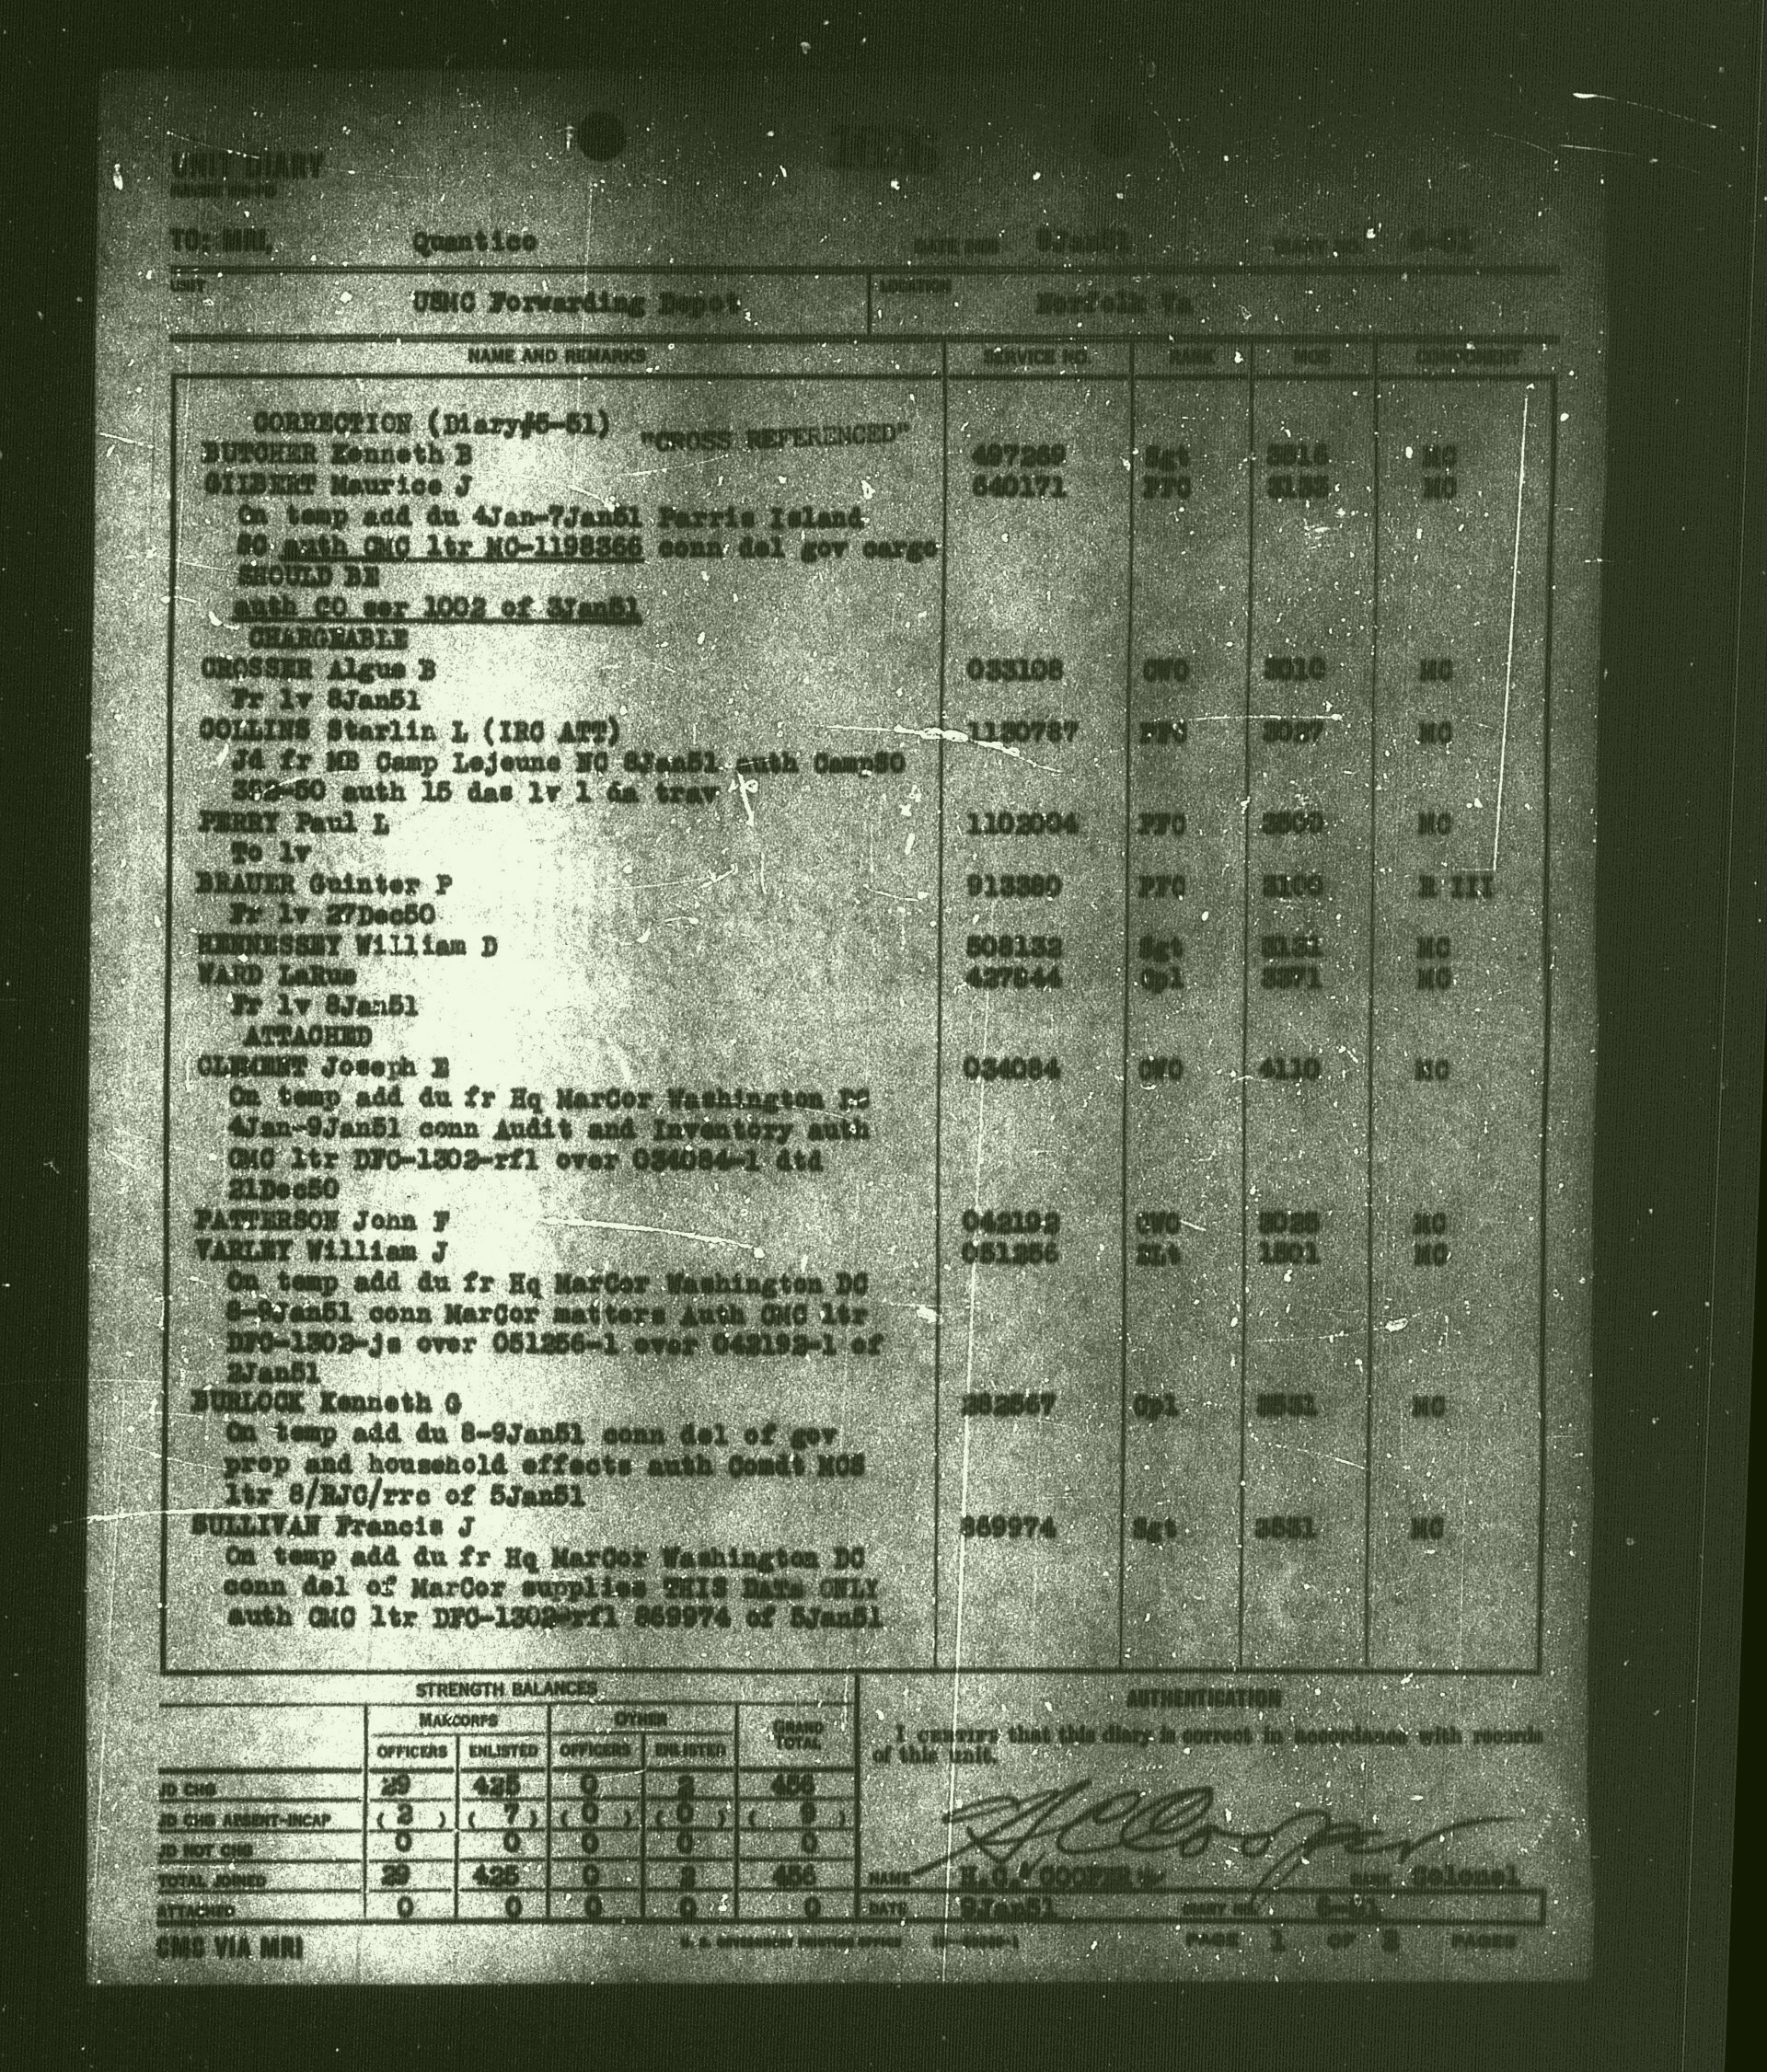 UNIT DIARY
TO: MRI, Quantico 8Jan51
UNIT USMC Forwarding Depot LOCATION Norfolk Va
NAME AND REMARKS SERVICE NO. RANK MOS COMPONENT
CORRECTION (Diary#5-51)
"CROSS REFERENCED"
BUTCHER Kenneth B 497269 Sgt MC
GILBERT Maurice J 640171 PFC MC
On temp add du 4Jan-7Jan51 Parris Island
SC auth CMC ltr MC-1198366 conn del gov cargo
SHOULD BE
auth CO ser 1002 of 3Jan51
CHARGEABLE
CROSSER Algus B 033108 CWO 3010 MC
Fr lv 8Jan51
COLLINS Starlin L (IRO ATT) 1130787 PFC MC
Jd fr MB Camp Lejeune NC 8Jan51 auth CampSO
382-50 auth 15 das lv 1 da trav
PERRY Paul L 1102004 PFC 3500 MC
To lv
BRAUER Guinter P 913380 PFC 3100 R III
Fr lv 27Dec50
HENNESSEY William D 508132 Sgt 3131 MC
WARD LaRue 427844 Cpl 3371 MC
Fr lv 8Jan51
ATTACHED
CLEMENT Joseph E 034084 CWO 4110 MC
On temp add du fr Hq MarCor Washington DC
4Jan-9Jan51 conn Audit and Inventory auth
CMC ltr DFC-1302-rfl over 034084-1 dtd
21Dec50
PATTERSON John F 042192 CWO MC
VARLEY William J 051256 MC
On temp add du fr Hq MarCor Washington DC
8-9Jan51 conn MarCor matters Auth CMC ltr
DFC-1302-js over 051256-1 over 042192-1 of
2Jan51
BURLOCK Kenneth G 282567 Cpl 3531 MC
On temp add du 8-9Jan51 conn del of gov
prop and household effects auth Comdt MCS
ltr 8/RJC/rrc of 5Jan51
SULLIVAN Francis J 869974 Sgt 3531 MC
On temp add du fr Hq MarCor Washington DC
conn del of MarCor supplies THIS DATE ONLY
auth CMC ltr DFC-1302-rfl 869974 of 5Jan51
STRENGTH BALANCES AUTHENTICATION
MARCORPS OTHER GRAND TOTAL
OFFICERS ENLISTED OFFICERS ENLISTED
I CERTIFY that this diary is correct in accordance with records
of this unit.
JD CHG 29 425 0 2 456
JD CHG ABSENT-INCAP ( 2 ) ( 7 ) ( 0 ) ( 0 ) ( 9 )
JD NOT CHG 0 0 0 0 0
TOTAL JOINED 29 425 0 2 456
ATTACHED 0 0 0 0 0
H C Cooper
NAME H.C. COOPER RANK Colonel
DATE 9Jan51 DIARY NO.
CMC VIA MRI U. S. GOVERNMENT PRINTING OFFICE PAGE 1 OF 2 PAGES